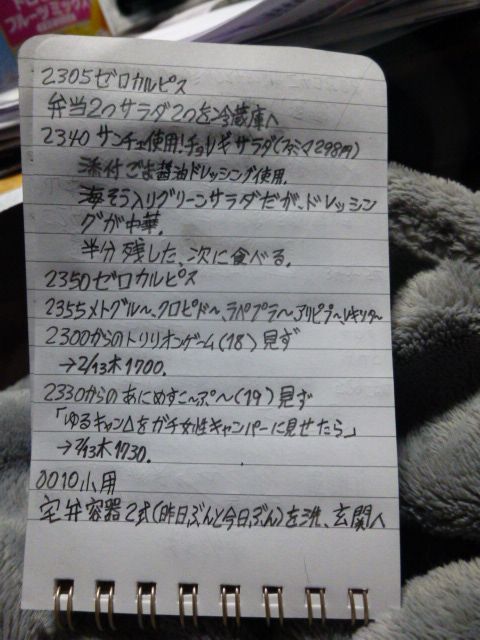 フルーツミックス
2305ゼロカルピス
弁当2つサラダ2つを冷蔵庫へ
2340 サンチェ使用!チョレギサラダ(ファミマ298円)
添付ごま醤油ドレッシング使用。
海そう入りグリーンサラダだが、ドレッシン
グが中華。
半分残した、次に食べる。
2350ゼロカルピス
2355メトグル〜、クロピド〜、ラベプラ〜、アリピプラ〜、レキソタ〜
2300からのトリリオンゲーム(18)見ず
→2/13木1700.
2330からのあにめすこ〜ぷ〜(19)見ず
「ゆるキャン△をガチ女性キャンパーに見せたら」
→2/13木1730.
0010小用
宅弁容器2式(昨日ぶんと今日ぶん)を洗、玄関へ